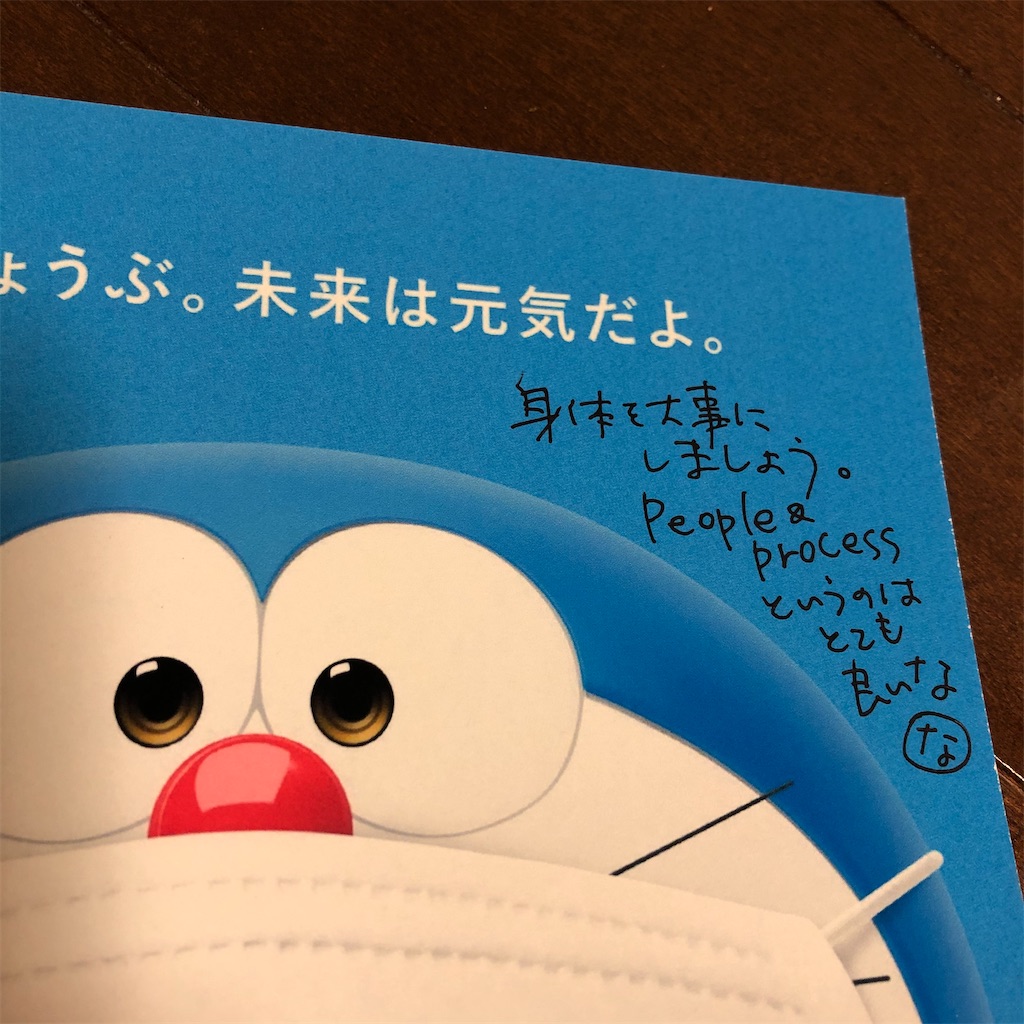 ょうぶ。未来は元気だよ。
身体を大事に
しましょう。
People &
process
というのは
とても
良いなな